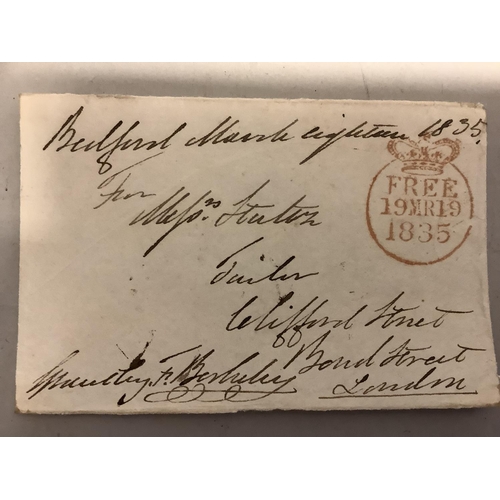 Bedford March eighteen 1835.
FREE
19MR19
1835
Messrs
Tailor
Clifford Street
Bond Street
London
Grantley F. Berkeley